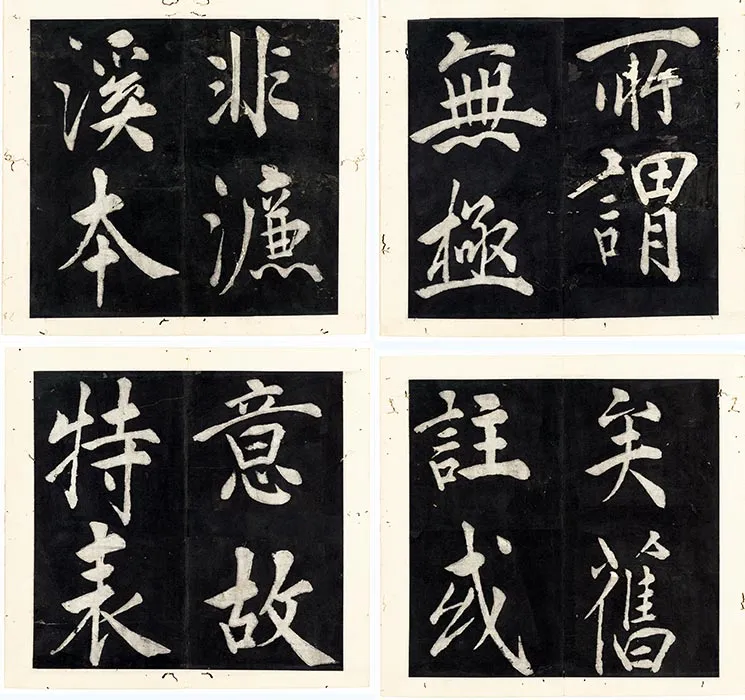 所謂
無極
矣舊
註或
非濂
溪本
意故
特表